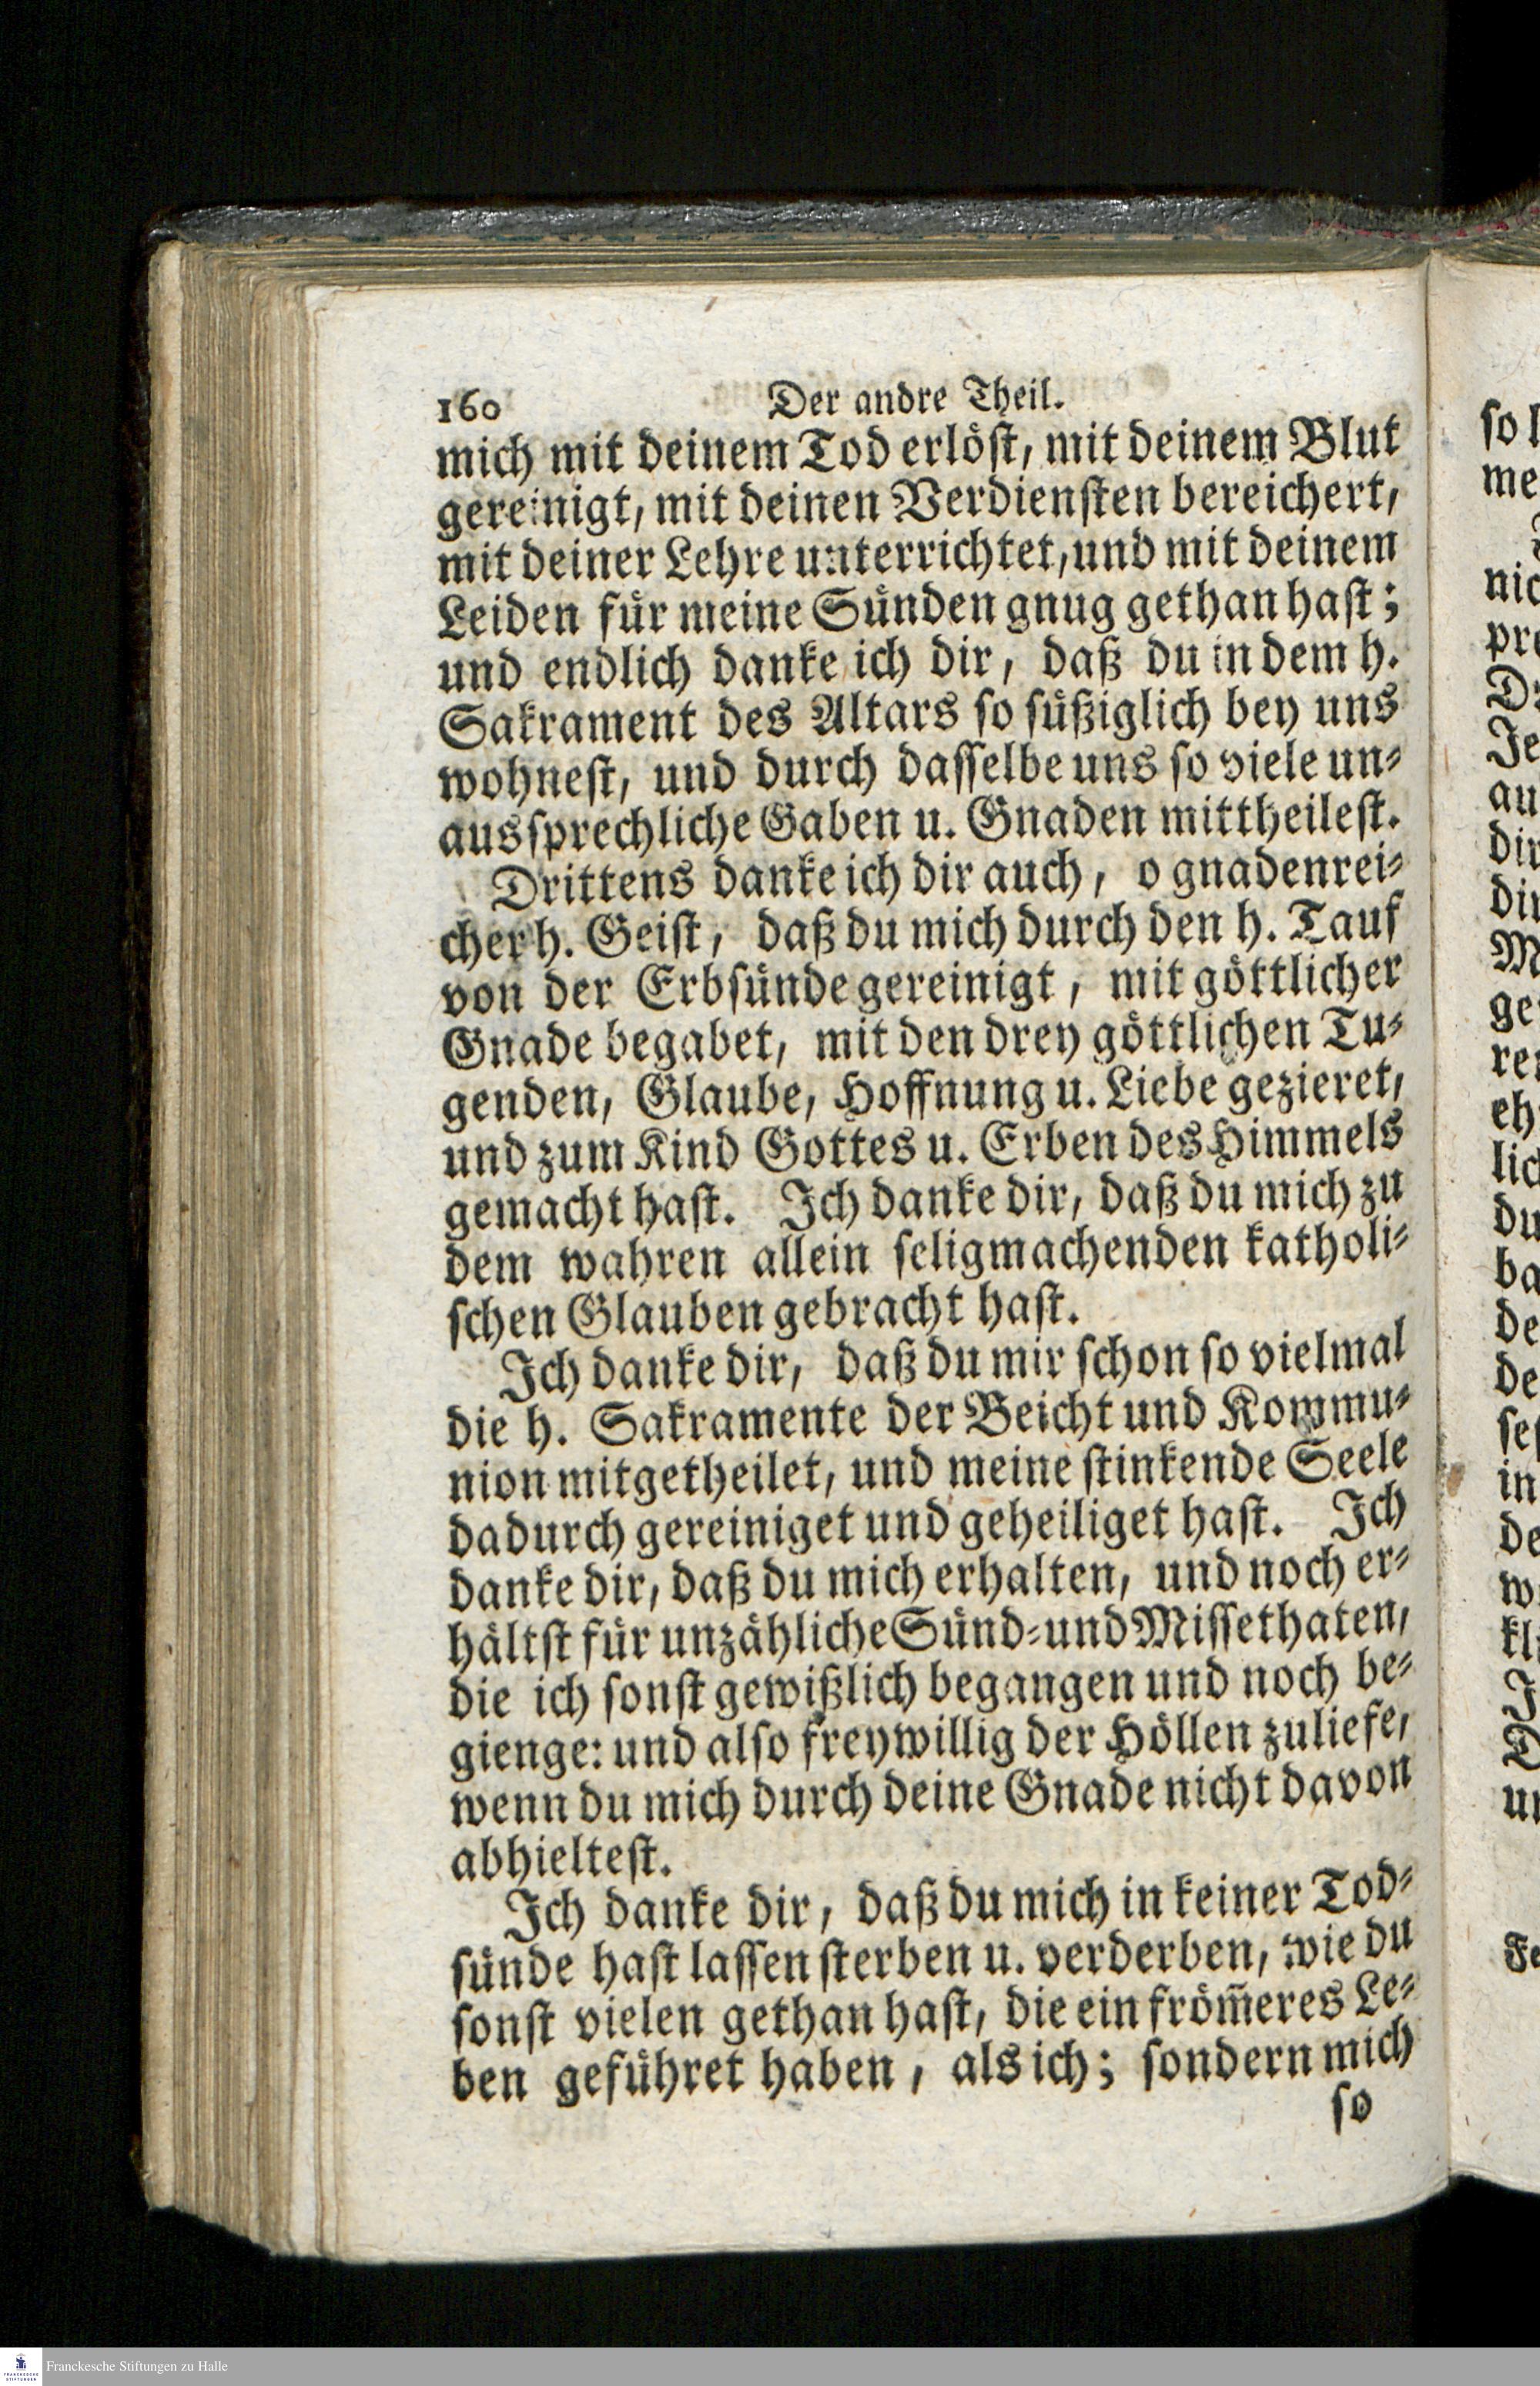 160 Der andre Theil.
mich mit deinem Tod erlöſt, mit deinem Blut
gereinigt, mit deinen Verdienſten bereichert,
mit deiner Lehre unterrichtet, und mit deinem
Leiden für meine Sünden gnug gethan haſt;
und endlich danke ich dir, daß du in dem h.
Sakrament des Altars ſo ſüßiglich bey uns
wohneſt, und durch daſſelbe uns ſo viele un⸗
ausſprechliche Gaben u. Gnaden mittheileſt.
Drittens danke ich dir auch, o gnadenrei⸗
cher h. Geiſt, daß du mich durch den h. Tauf
von der Erbſünde gereinigt, mit göttlicher
Gnade begabet, mit den drey göttlichen Tu⸗
genden, Glaube, Hoffnung u. Liebe gezieret,
und zum Kind Gottes u. Erben des Himmels
gemacht haſt. Ich danke dir, daß du mich zu
dem wahren allein ſeligmachenden katholi⸗
ſchen Glauben gebracht haſt.
Ich danke dir, daß du mir ſchon ſo vielmal
die h. Sakramente der Beicht und Kommu⸗
nion mitgetheilet, und meine ſtinkende Seele
dadurch gereiniget und geheiliget haſt. Ich
danke dir, daß du mich erhalten, und noch er⸗
hältſt für unzähliche Sünd⸗ und Miſſethaten,
die ich ſonſt gewißlich begangen und noch be⸗
gienge: und alſo freywillig der Höllen zuliefe,
wenn du mich durch deine Gnade nicht davon
abhielteſt.
Ich danke dir, daß du mich in keiner Tod⸗
ſünde haſt laſſen ſterben u. verderben, wie du
ſonſt vielen gethan haſt, die ein from̃eres Le⸗
ben geführet haben, als ich; ſondern mich
ſo
Franckesche Stiftungen zu Halle